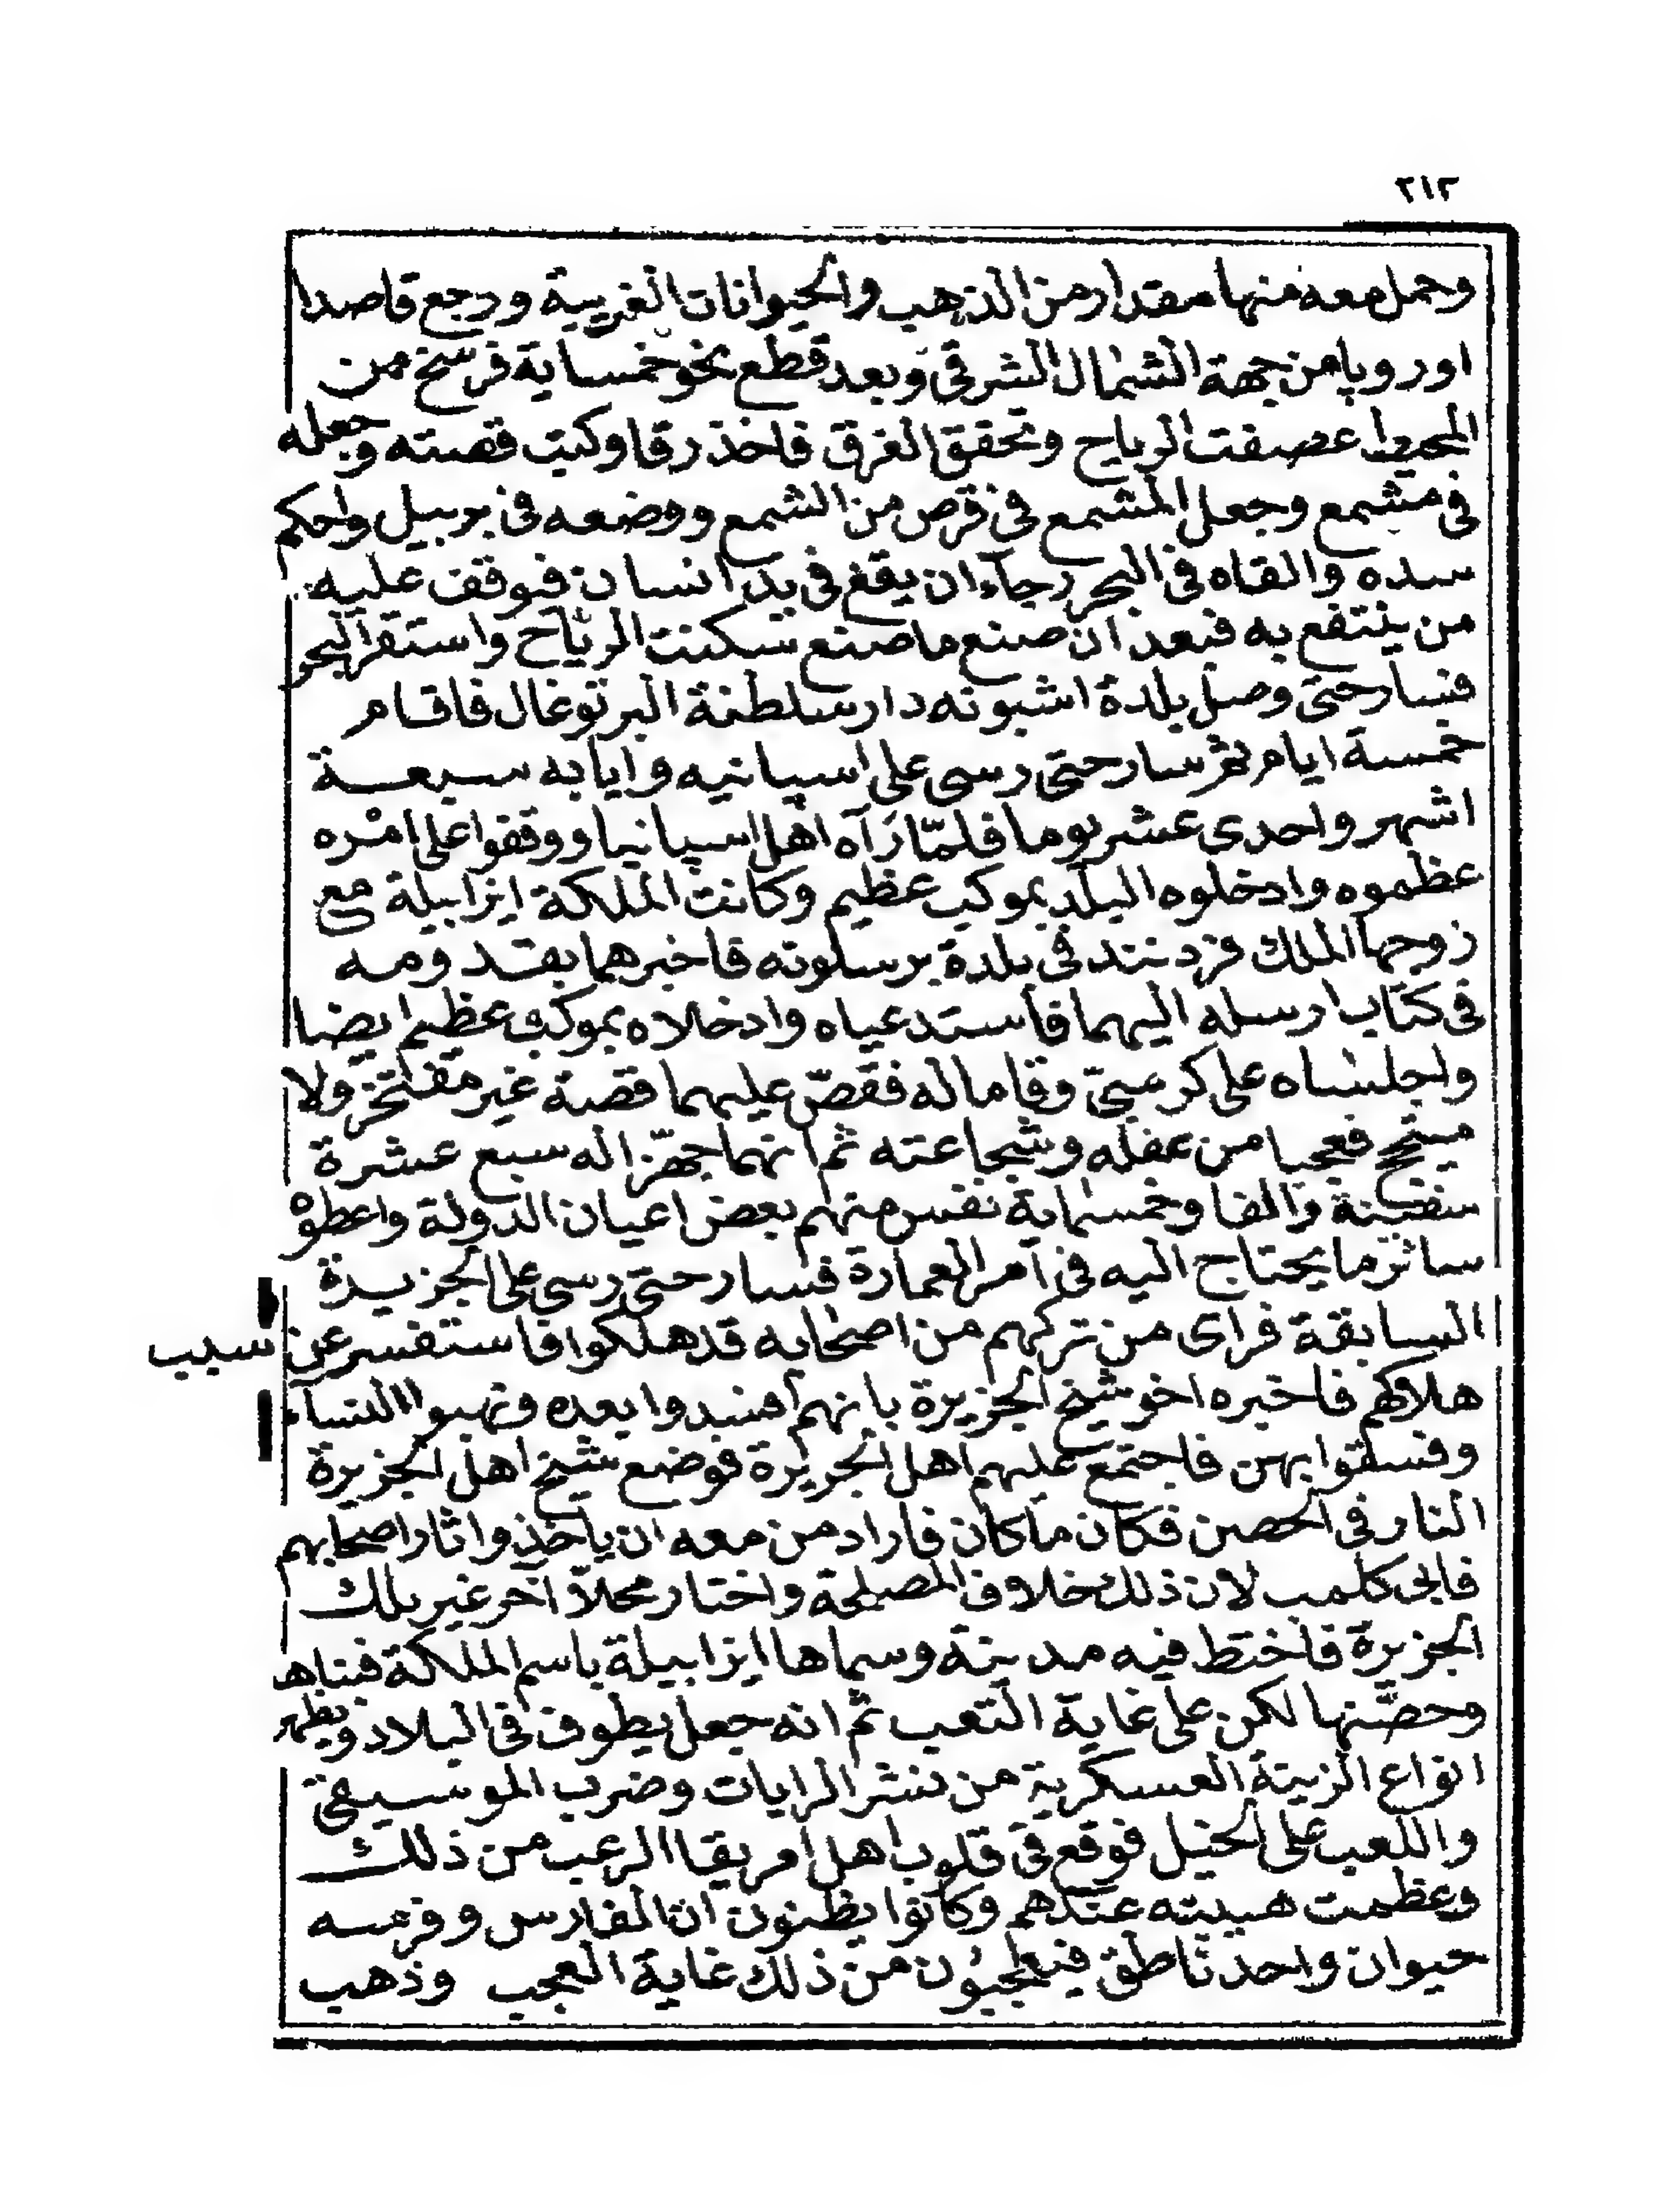 ٢١٢
وحمل معه منها مقدار من الذهب والحيوانات الغريبة ورجع قاصدا
اوروپا من جهة الشمال الشرقى وبعد قطع نحو خمسماية فرسخ من
المحيط عصفت الرياح وتحقق الغرق فاخذ رقا وكتب قصته وجعله
فى مشمع وجعل المشمع فى قرص من الشمع ووضعه فى برييل واحكم
سده والقاه فى البحر رجاء ان يقع فى يد انسان فيوقف عليه
من ينتفع به فبعد ان صنع ما صنع سكنت الرياح واستقر البحر
فسار حتى وصل بلدة اشبونه دار سلطنة البرتوغال فاقام
خمسة ايام ثم سار حتى رسى على اسپانيه وايابه سبعة
اشهر واحدى عشر يوما فلمّا رآه اهل اسپانيا ووقفوا على امره
عظموه وادخلوه البلد بموكب عظيم وكانت الملكة ايزابيلة مع
زوجها الملك فردنند فى بلدة برسلونه فاخبرهما بقدومه
فى كتاب ارسله اليهما فاستدعياه وادخلاه بموكب عظيم ايضا
واجلساه على كرسىّ وقاما له فقصّ عليهما قصة غير مفتخر ولا
متبجح فعجبا من عقله وشجاعته ثم انهما جهّزا له سبع عشرة
سفينة والفا وخمسماية نفس منهم بعض اعيان الدولة واعطوه
سائر ما يحتاج اليه فى امر العمارة فسار حتى رسى على الجزيرة
السابقة فراى من تركهم من اصحابه قد هلكوا فاستفسر عن سبب
هلاكهم فاخبره اخو شيخ الجزيرة بانهم افسدوا بعده ونهبوا النساء
وفسقوا بهن فاجتمع عليهم اهل الجزيرة فوضع شيخ اهل الجزيرة
النار فى الحصن فكان ما كان فاراد من معه ان ياخذوا ثار اصحابهم
فابى كلمب لان ذلك خلاف المصلحة واختار محلاّ آخر غير تلك
الجزيرة فاختط فيه مدينة وسماها ايزابيلة باسم الملكة فبناها
وحصّنها لكن على غاية التعب ثم انه جعل يطوف فى البلاد ويظهر
انواع الزينة العسكرية من نشر الرايات وضرب الموسيقى
واللعب على الخيل فوقع فى قلوب اهل امريقا الرعب من ذلك
وعظمت هيبته عندهم وكانوا يظنون ان الفارس وفرسه
حيوان واحد ناطق فيعجبون من ذلك غاية العجب وذهب